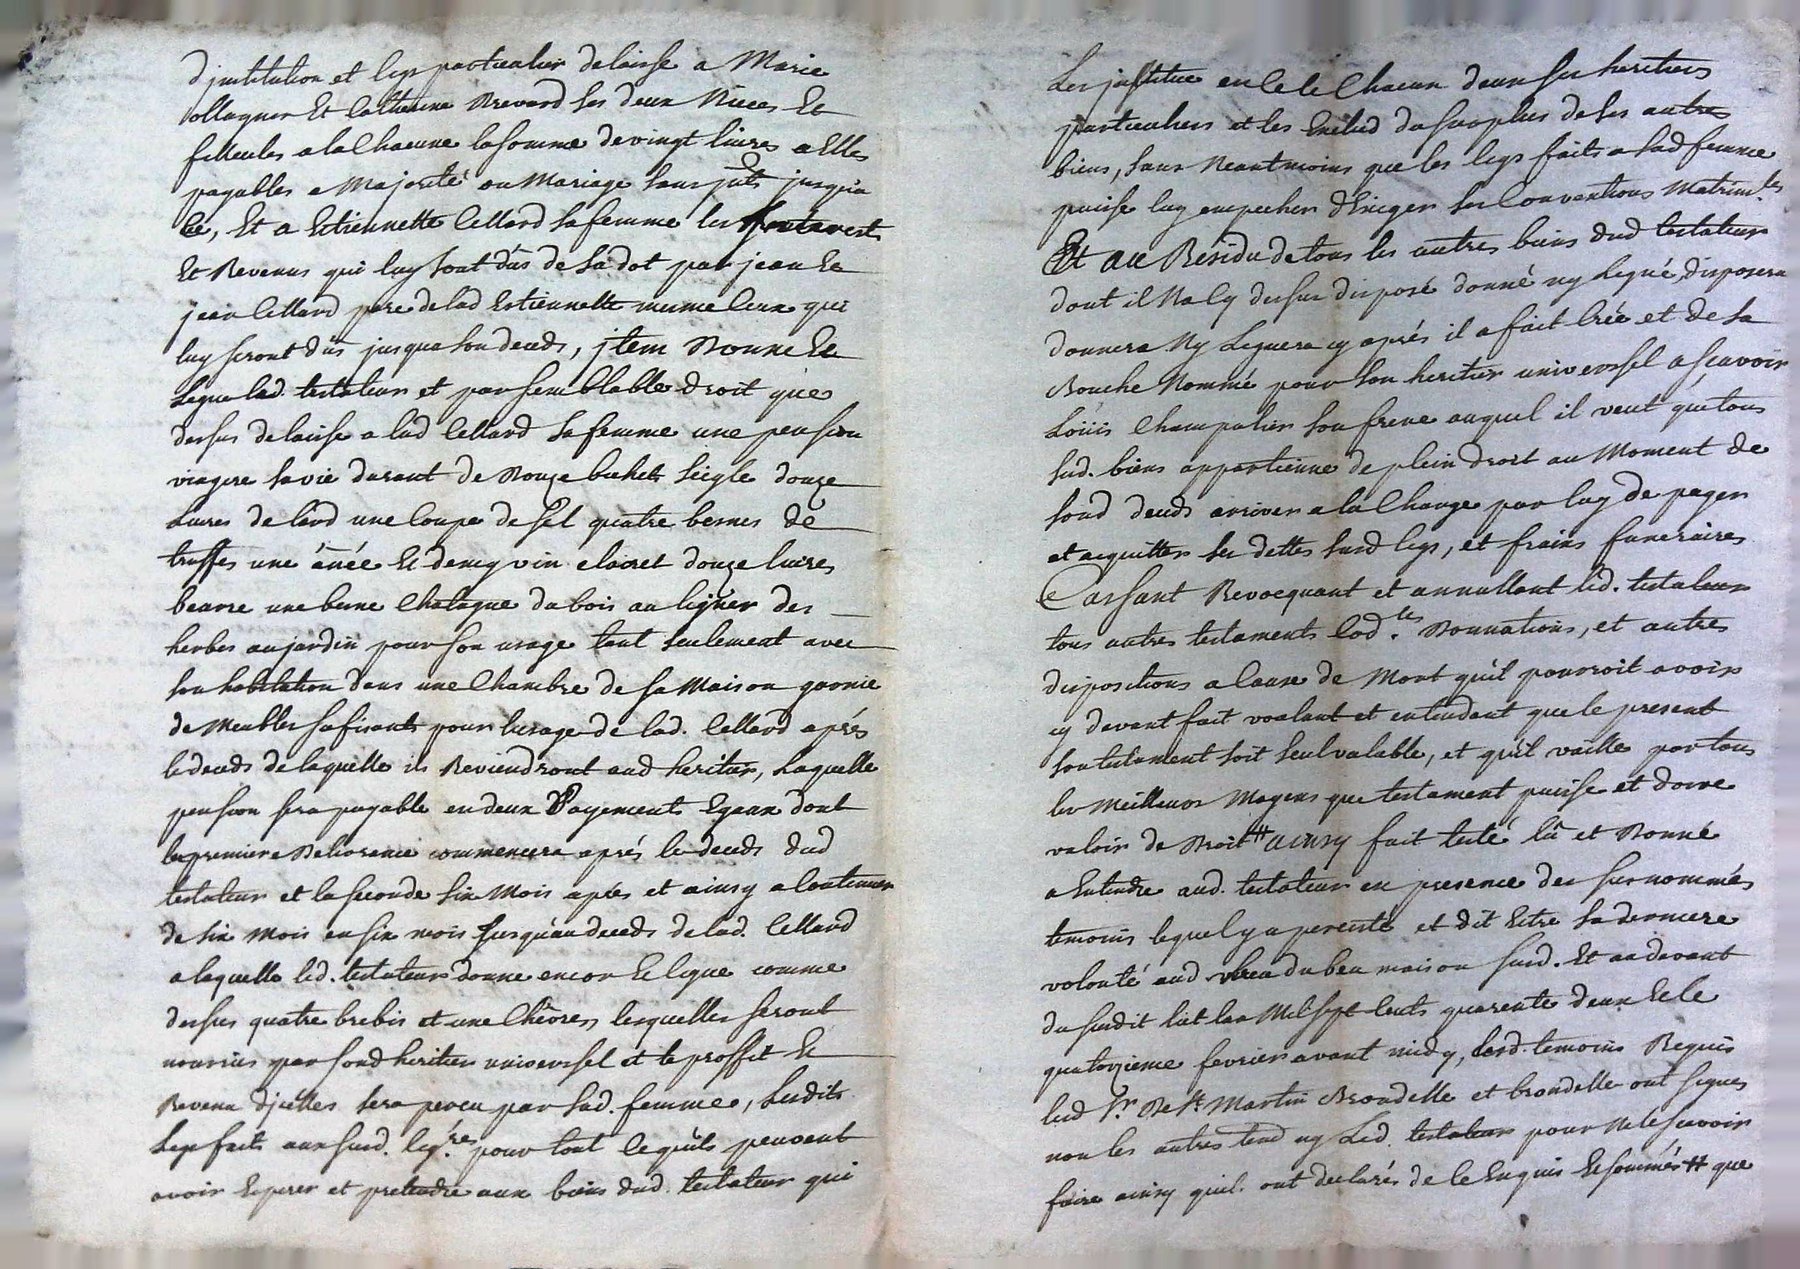 d'jnstitution et legs particulier delaisse a Marie
ollagner Et Catherine Brevard Ses deux Nieces Et
filleules a la Chacune la somme de vingt livres a Elles
payables a Majorité ou Mariage sans jnts jusqu'a
ce, Et a Estiennette Cellard sa femme les
Et Revenus qui luy sont dûs de sa dot par jean Et
jean Cellard pere de lad Estiennette mesme Ceux qui
luy seront dûs jusqua son deceds, jtem Donne Et
Legue led. testateur et par semblable droit que
dessus delaisse a lad Cellard sa femme une pension
viagere sa vie durant de Douze bichets seigle douze
Livres de lard une Coupe de sel quatre bennes de
truffes une ânée Et demy vin clairet douze livres
beurre une benne Chatagne du bois au ligner des
herbes au jardin pour son usage tant seulement avec
son habitation dans une Chambre de sa Maison garnie
de Meubles sufisants pour lusage de lad. Cellard aprés
le deceds de laquelle ils Reviendront aud heritier, Laquelle
pension sera payable en deux Payements Egeaux dont
le premiere commencera aprés le deceds dud
testateur et la seconde six Mois apres et ainsy a Continuer
de six mois en six mois jusqu'au deceds de lad. Cellard
a laquelle led. testateur donne encor Et legue comme
dessus quatre brebis et une Chêvre, lesquelles seront
nourries par sond heritier universsel et le proffit Et
Revenu d'jcelles sera perçu par sad. femme, Lesdits
Legs faits aux susd. leg.res pour tout ce quils peuvent
avoir Esperer et pretendre aux biens dud. testateur qui
Les justitue en ce le Chacun deux ses heritiers
particuliers et les Exclud du surplus de ses autres
biens, sans Neantmoins que les legs faits a sad femme
puisse luy empecher d'Exiger ses Conventions Matrim.les
Et au Residu de tous les autres biens dud testateur
dont il Na Cy dessus disposé donné ny legué, disposera
donnera Ny Leguera cy aprés il a fait Créé et de sa
Bouche Nommé pour son heritier universsel a sçavoir
Loüis Champalier son frere auquel il veut que tous
sesd. biens appartienne de plein droit au Moment de
sond deceds arriver a la Charge par luy de payer
et acquitter ses dettes susd legs, et fraix funeraires
Cassant Revocquant et annullant led. testateur
tous autres testaments Cod.les Donnations, et autres
dispositions a Cause de Mort qu'il pourroit avoir
cy devant fait voulant et entendant que le present
son testament soit seul valable, et qu'il vaille par tous
les Meilleurs Moyens que testament puisse et doive
valoir de Droit # ainsy fait testé lû et Donné
a Entendre aud. testateur en presence des surnommés
temoins lequel y a percisté et dit Estre sa derniere
volonté aud lieu du beu maison susd. Et au devant
du susdit lit lan Mil sept Cents quarente deux Et le
quatorzieme fevrier avant midy, lesd. temoins Requis
led Sr De St Martin Brondelle et brondelle ont signes
non les autres temd ny Led. testateur pour Ne le sçavoir
faire ainsy quil. ont declarés de ce Enquis Et sommés # que